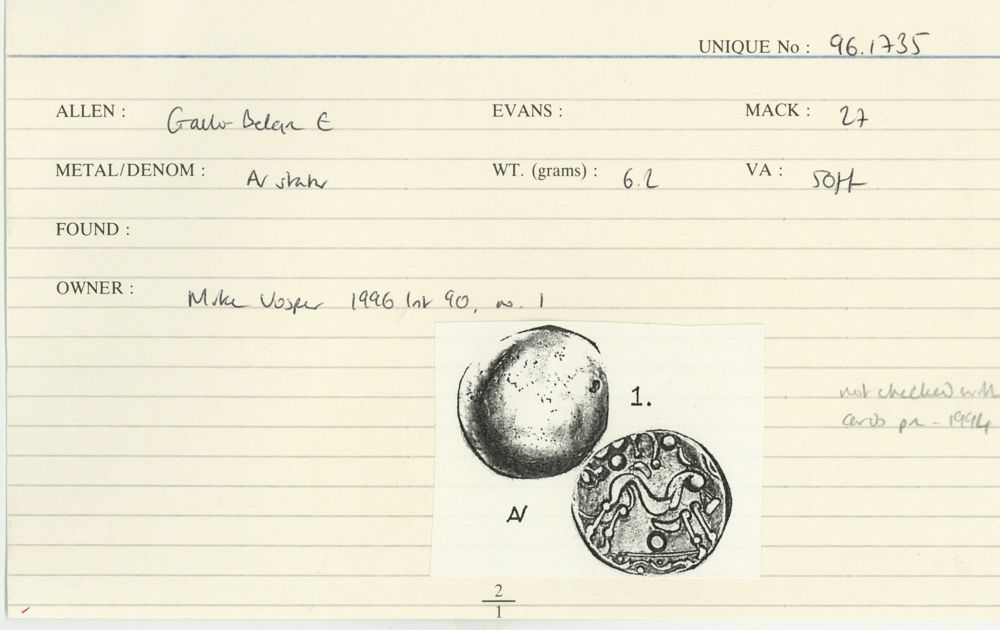 UNIQUE No : 96.1735
ALLEN : Gallo-Belgic E EVANS : MACK : 27
METAL/DENOM : AV stater WT. (grams) : 6.2 VA :
FOUND :
OWNER : Mike Vosper 1996 list 90, no. 1
1.
not checked with
cards pre-1994
AV
2
1